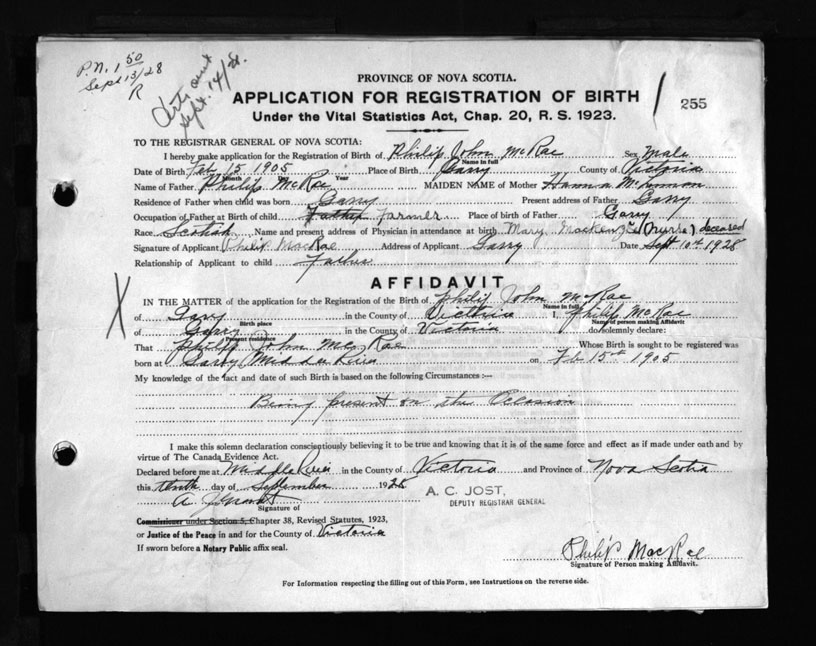 P.N. 1 50
Sept 13/28
R
Certs out
Sept. 14/28.
PROVINCE OF NOVA SCOTIA.
APPLICATION FOR REGISTRATION OF BIRTH
255
Under the Vital Statistics Act, Chap. 20, R. S. 1923.
TO THE REGISTRAR GENERAL OF NOVA SCOTIA:
I hereby make application for the Registration of Birth of Philip John McRae Sex Male
Name in full
Date of Birth Feb 15 1905 Place of Birth Garry County of Victoria
Month Year
Name of Father Philip McRae MAIDEN NAME of Mother Hanna McLennan
Residence of Father when child was born Garry Present address of Father Garry
Occupation of Father at Birth of child Father Farmer Place of birth of Father Garry
Race Scotish Name and present address of Physician in attendance at birth Mary Mackenzie (Nurse) deceased
Signature of Applicant Philip MacRae Address of Applicant Garry Date Sept 10th 1928
Relationship of Applicant to child Father
AFFIDAVIT
IN THE MATTER of the application for the Registration of the Birth of Philip John McRae
Name in full
of Garry in the County of Victoria I, Philip McRae
Birth place Name of person making Affidavit
of Garry in the County of Victoria do solemnly declare:
Present residence
That Philip John McRae Whose Birth is sought to be registered was
born at Garry Middle River on Feb 15th 1905
My knowledge of the fact and date of such Birth is based on the following Circumstances :—
Being present on the Occasion
I make this solemn declaration conscientiously believing it to be true and knowing that it is of the same force and effect as if made under oath and by
virtue of The Canada Evidence Act.
Declared before me at Middle River in the County of Victoria and Province of Nova Scotia
this tenth day of September 1928
A. C. JOST,
DEPUTY REGISTRAR GENERAL
Signature of
Commissioner under Section 5, Chapter 38, Revised Statutes, 1923,
or Justice of the Peace in and for the County of Victoria
If sworn before a Notary Public affix seal.
Philip MacRae
Signature of Person making Affidavit.
For Information respecting the filling out of this Form, see Instructions on the reverse side.